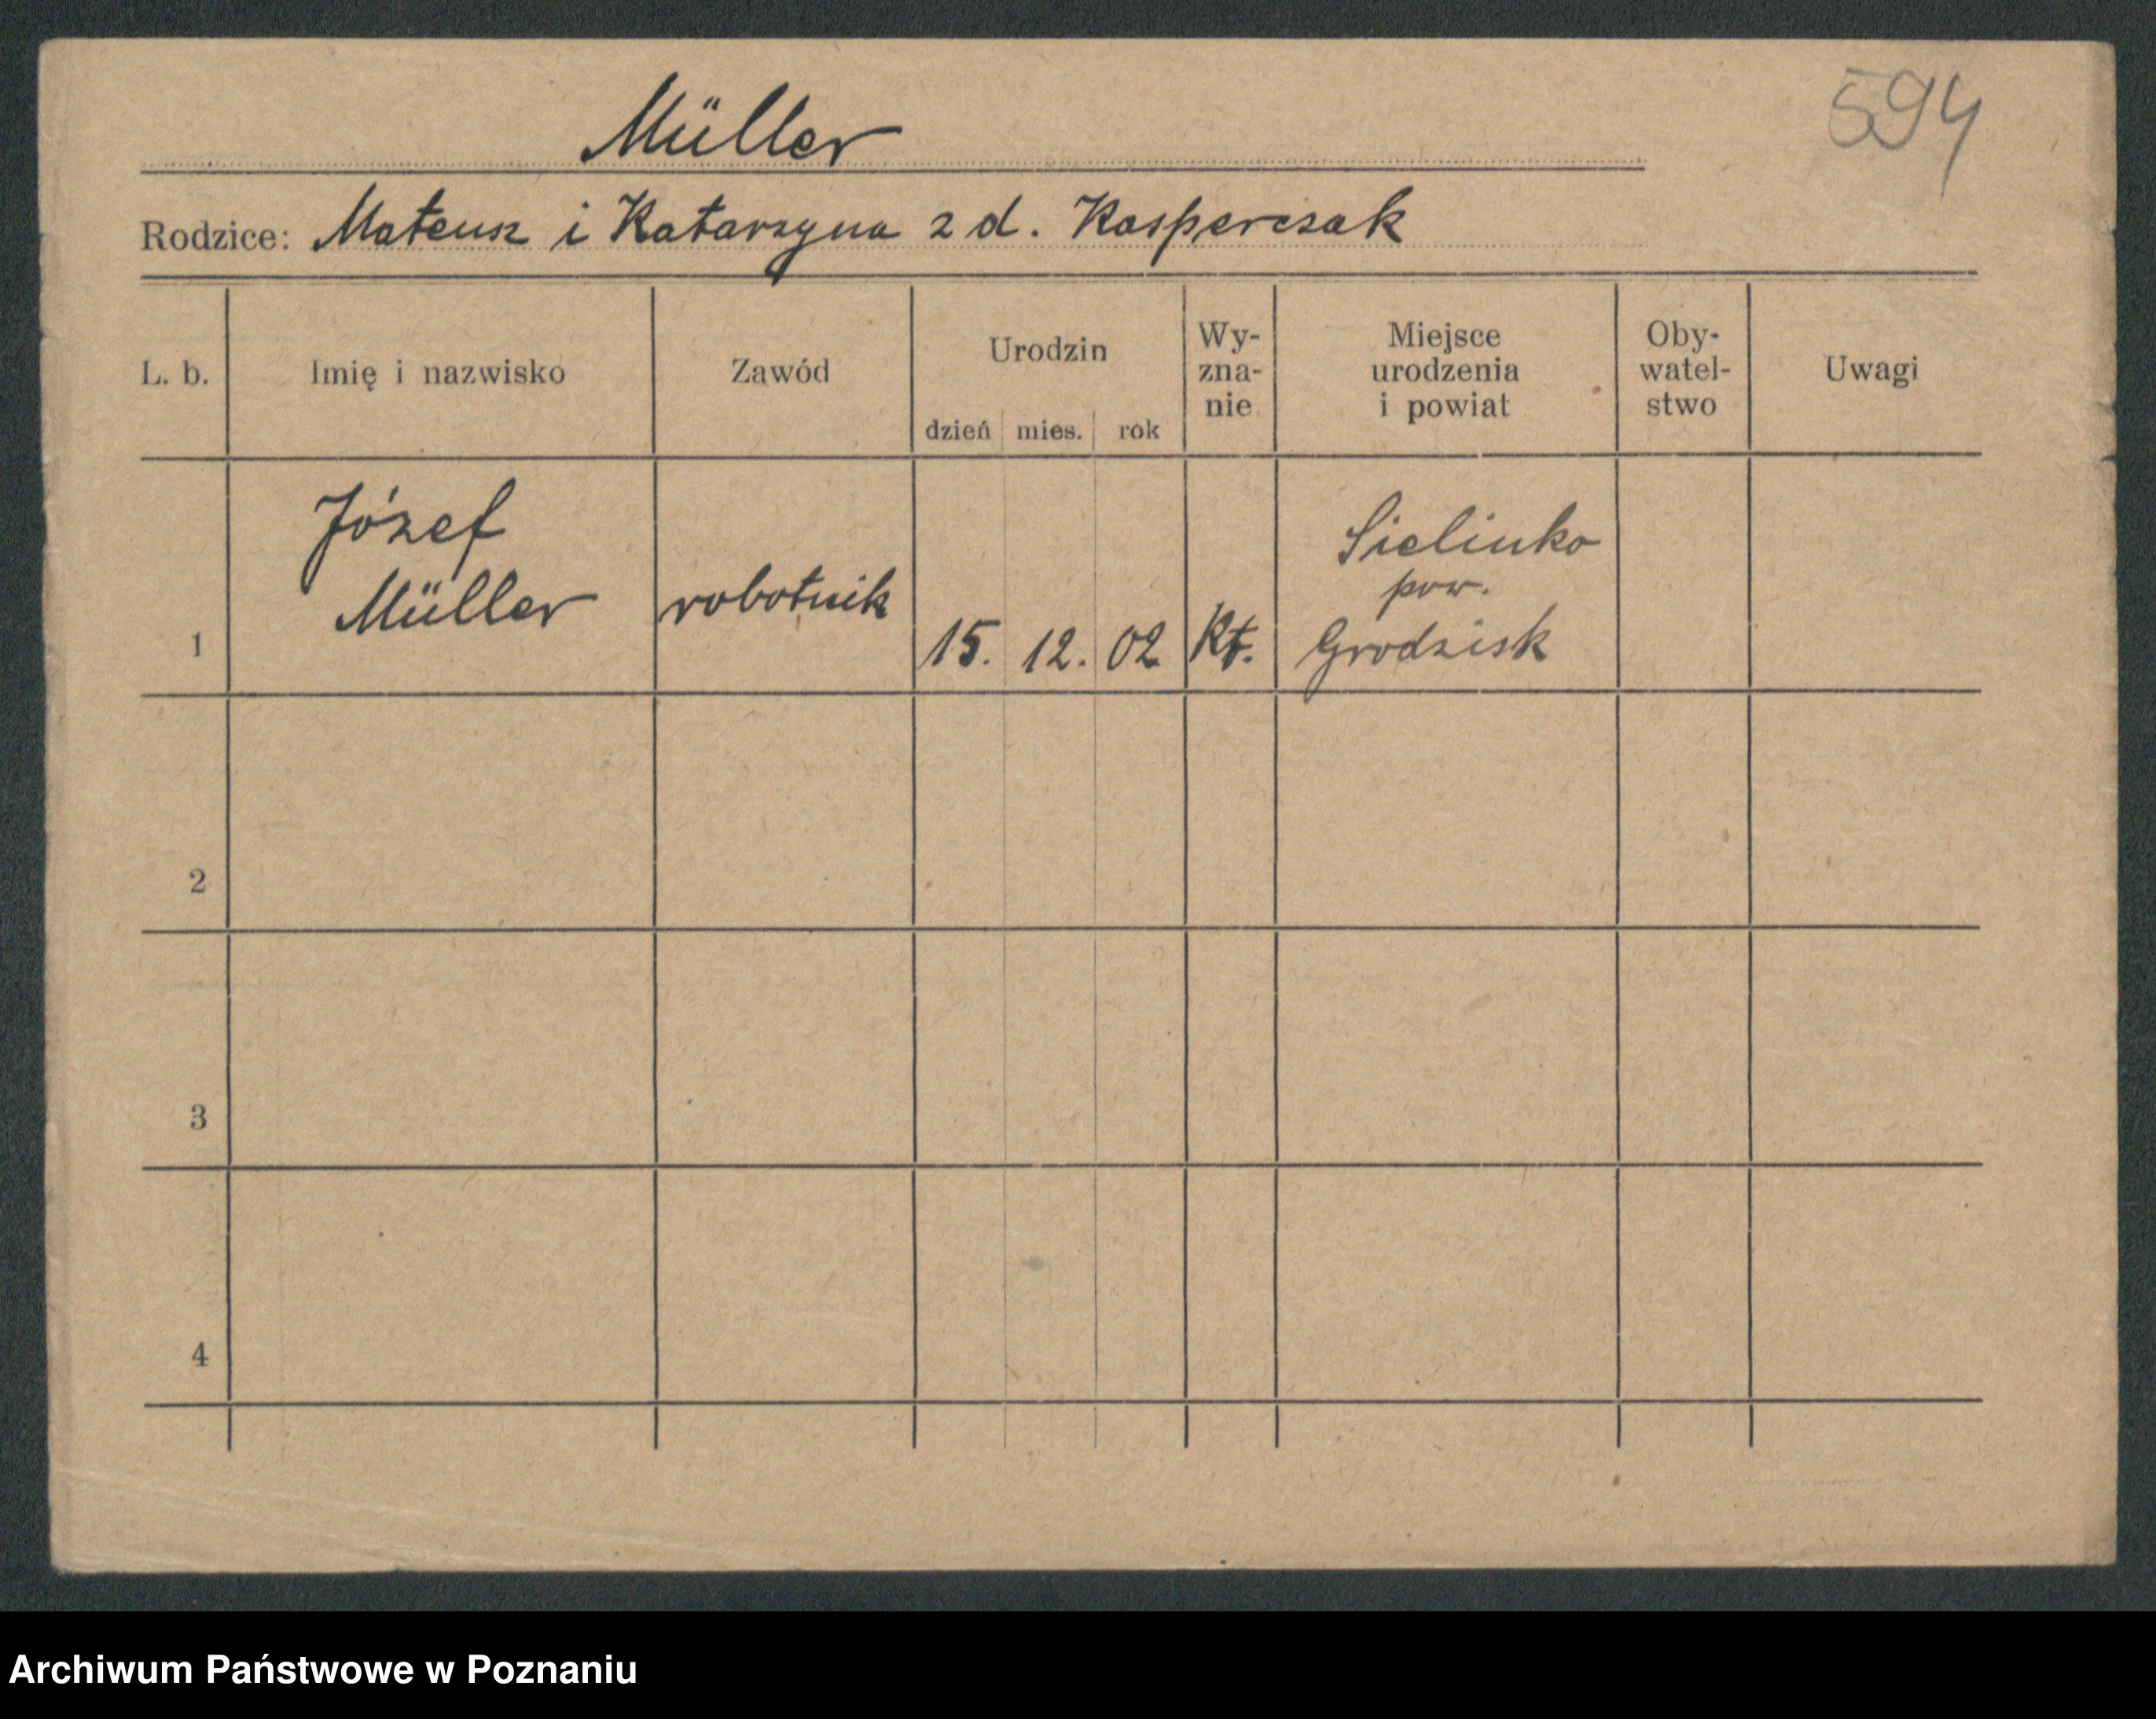 Müller
594
Rodzice: Mateusz i Katarzyna z d. Kasperczak
L. b.
Imię i nazwisko
Zawód
Urodzin
dzień mies. rok
Wy-
zna-
nie
Miejsce
urodzenia
i powiat
Oby-
watel-
stwo
Uwagi
1
Józef
Müller
robotnik
15. 12. 02
Kt.
Sielinko
pow.
Grodzisk
2
3
4
Archiwum Państwowe w Poznaniu